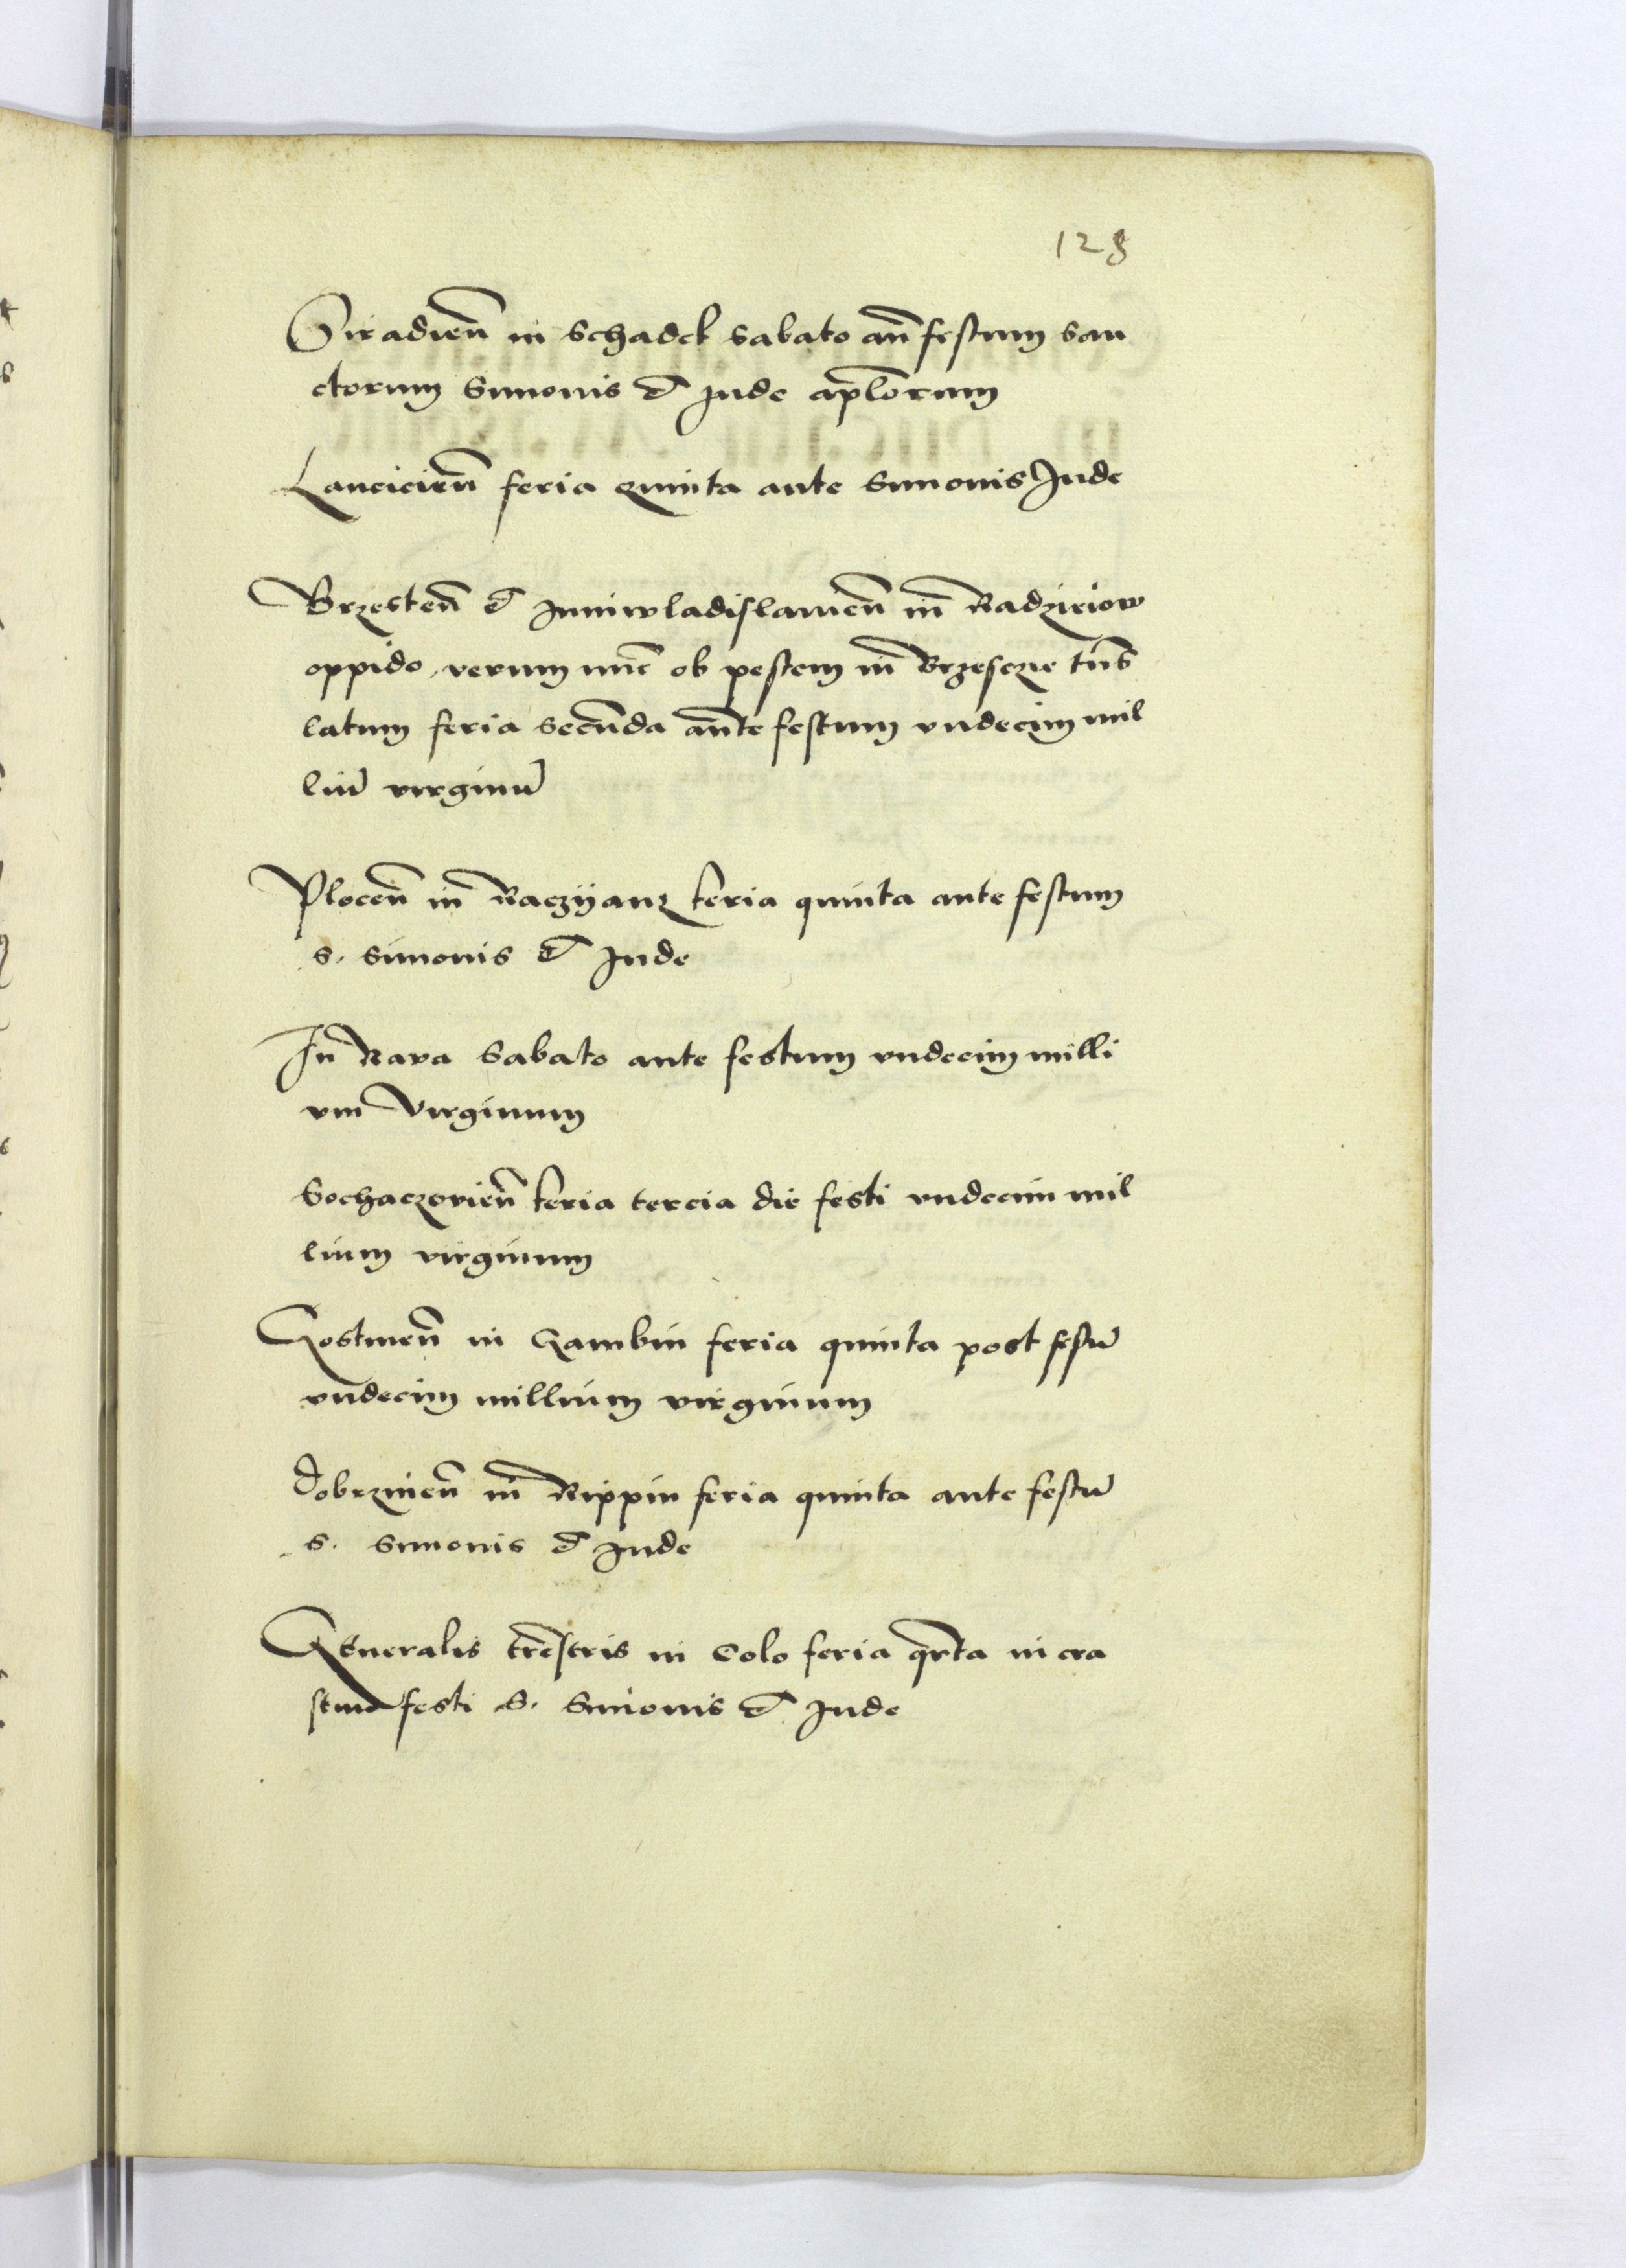 128
Siradien̄ in Schadek Sabato an̄ festum san
ctorum Simonis et Jude ap̄lorum
Lanciciēn feria quinta ante Simonis Jude
Brzesten̄ et Juniwladislauien̄ in Radzieiow
oppido, verum nūc ob pestem in Brzesczie trās
latum feria secunda ante festum vndecim mil
liū virginū
Plocen̄ in Raczyanz feria quinta ante festum
S. Simonis et Jude
In Rava Sabato ante festum vndecim milli
um Virginum
Sochaczovien̄ feria tercia die festi vndecim mil
lium virginum
Gostinen̄ in Gambin feria quinta post festū
vndecim millium virginum
Dobrzinen̄ in Rippin feria quinta ante festū
S. Simonis et Jude
Generalis tr̄estris in Colo feria qr̄ta in cra
stino festi S. Simonis et Jude